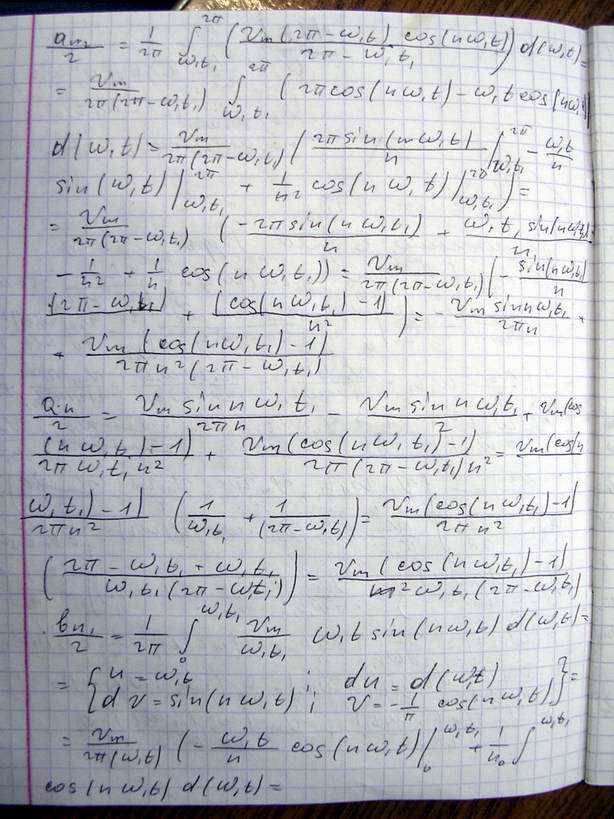 a_{n2}/2 = 1/2π ∫_{ω₁t₁}^{2π} (V_m(2π-ω₁t) cos(nω₁t) / 2π-ω₁t₁) d(ω₁t) =
= V_m / 2π(2π-ω₁t₁) ∫_{ω₁t₁}^{2π} (2π cos(nω₁t) - ω₁t cos(nω₁t))
d(ω₁t) = V_m / 2π(2π-ω₁t₁) (2π sin(nω₁t) / n |_{ω₁t₁}^{2π} - ω₁t / n
sin(ω₁t) |_{ω₁t₁}^{2π} + 1/n² cos(nω₁t) |_{ω₁t₁}^{2π}) =
= V_m / 2π(2π-ω₁t₁) (-2π sin(nω₁t₁) / n + ω₁t₁ sin(nω₁t₁) / n
- 1/n² + 1/n cos(nω₁t₁)) = V_m / 2π(2π-ω₁t₁) (- sin(nω₁t₁) / n
(2π-ω₁t₁) + (cos(nω₁t₁)-1) / n²) = - V_m sin nω₁t₁ / 2πn +
+ V_m (cos(nω₁t₁)-1) / 2πn²(2π-ω₁t₁)
a_n/2 = V_m sin nω₁t₁ / 2πn - V_m sin nω₁t₁ / 2 + V_m(cos
(nω₁t₁)-1) / 2πω₁t₁n² + V_m(cos(nω₁t₁)-1) / 2π(2π-ω₁t₁)n² = V_m(cos(n
ω₁t₁)-1) / 2πn² (1/ω₁t₁ + 1/(2π-ω₁t₁)) = V_m(cos(nω₁t₁)-1) / 2πn²
(2π-ω₁t₁+ω₁t₁ / ω₁t₁(2π-ω₁t₁)) = V_m(cos(nω₁t₁)-1) / n²ω₁t₁(2π-ω₁t₁)
b_{n1}/2 = 1/2π ∫_0^{ω₁t₁} V_m/ω₁t₁ ω₁t sin(nω₁t) d(ω₁t) =
= {u = ω₁t ; du = d(ω₁t)
dv = sin(nω₁t) ; V = -1/n cos(nω₁t)} =
= V_m / 2π(ω₁t) (- ω₁t / n cos(nω₁t) |_0^{ω₁t₁} + 1/n ∫_0^{ω₁t₁}
cos(nω₁t) d(ω₁t) =